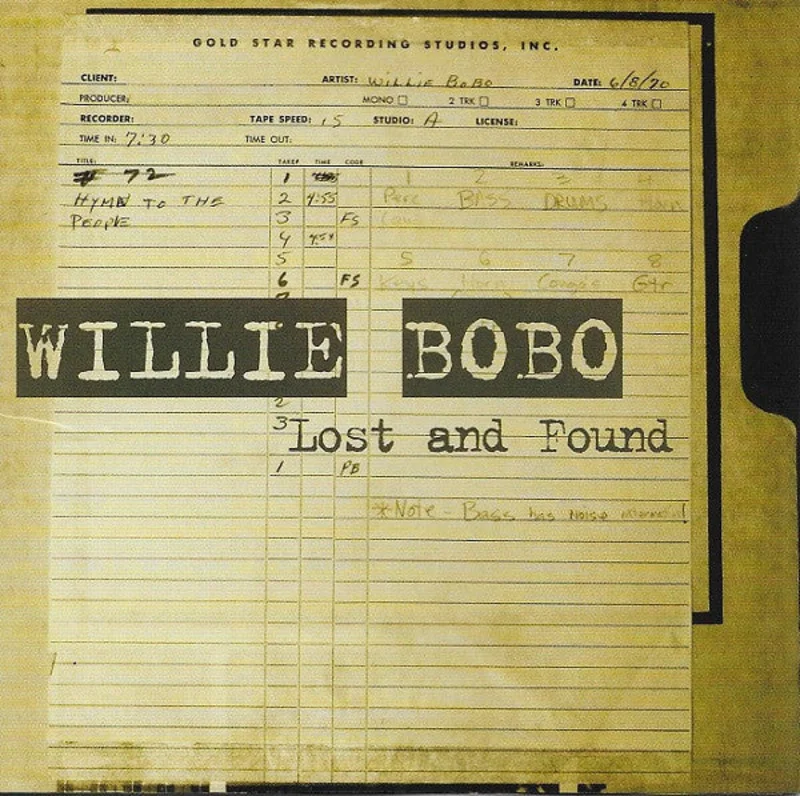 GOLD STAR RECORDING STUDIOS, INC.
CLIENT: ARTIST: Willie Bobo DATE: 6/8/70
PRODUCER: MONO 2 TRK 3 TRK 4 TRK
RECORDER: TAPE SPEED: 15 STUDIO: A LICENSE:
TIME IN: 7:30 TIME OUT:
TITLE: TAKE# TIME CODE REMARKS:
# 72 1 1 2 3 4
HYMN TO THE 2 4:55 Perc BASS DRUMS Horn
PEOPLE 3 FS
4 4:54
5 5 6 7 8
6 FS Keys Horn Congas Gtr
WILLIE BOBO
2
3
Lost and Found
1 PB
*Note - Bass has noise